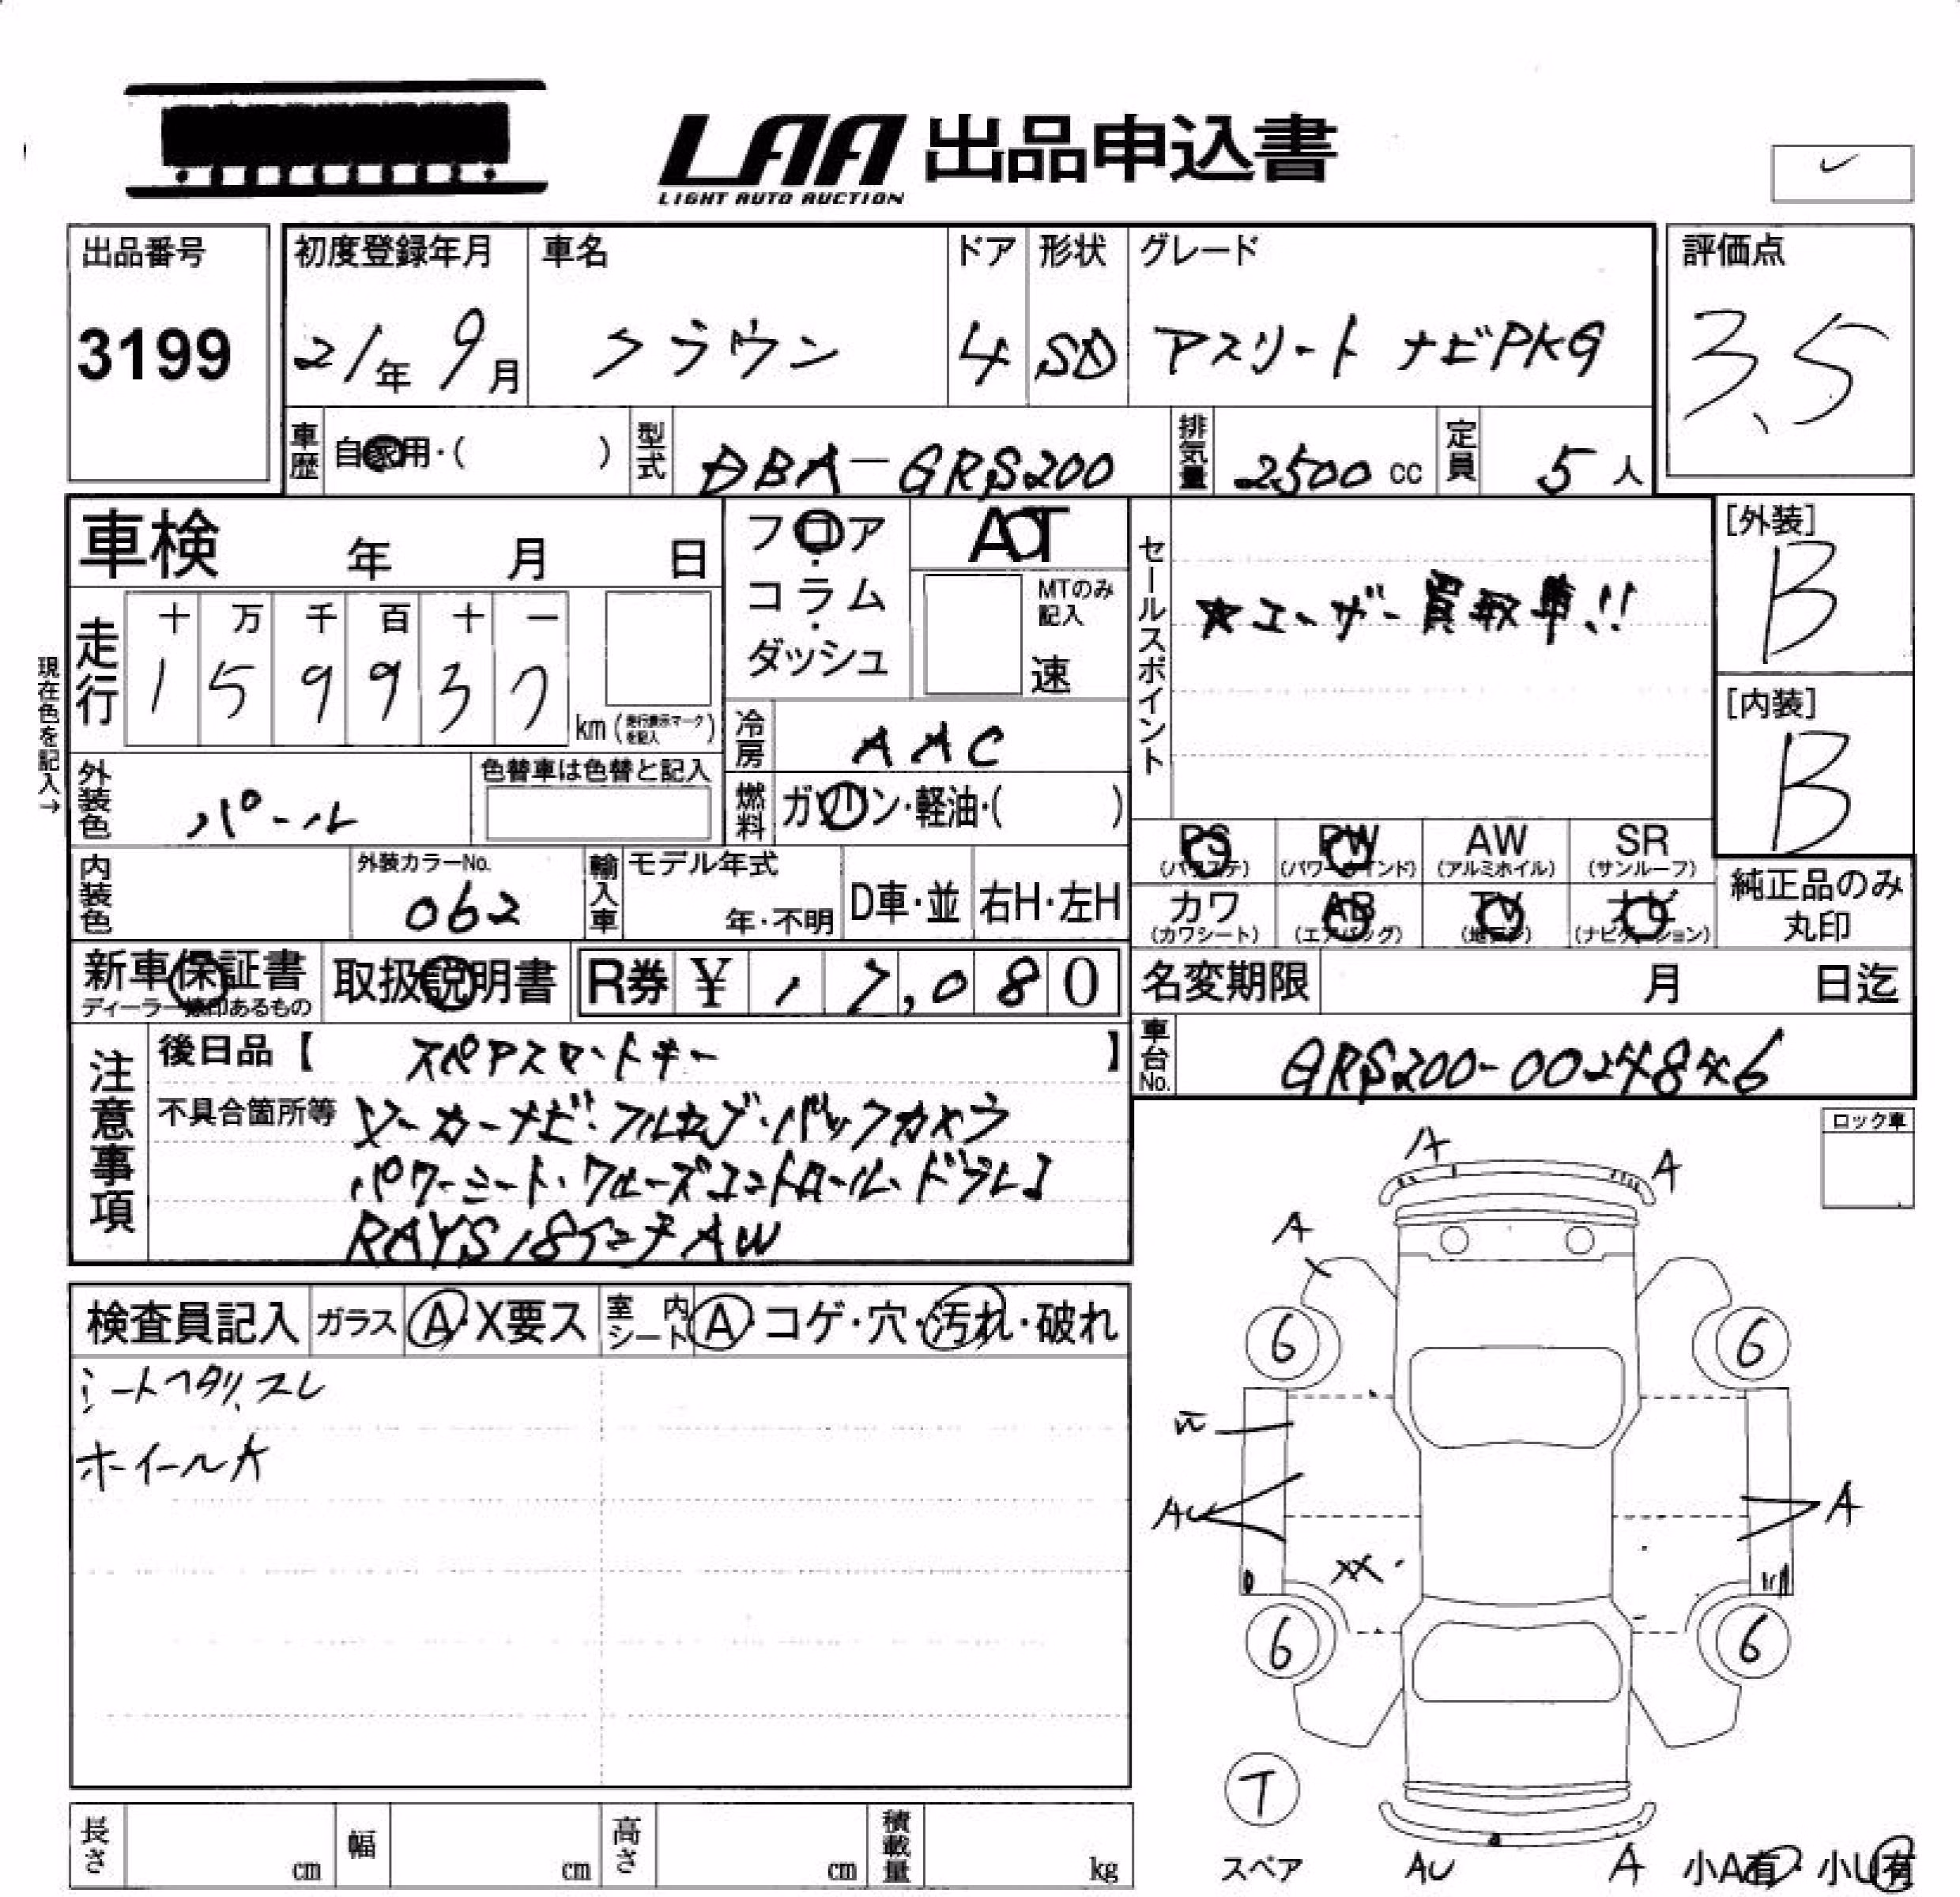 LAA 出品申込書
LIGHT AUTO AUCTION
出品番号
3199
初度登録年月 車名 ドア 形状 グレード
21年 9月 クラウン 4 SD アスリート ナビPKG
評価点
3.5
車歴 自家用・( ) 型式 DBA-GRS200 排気量 2500 cc 定員 5 人
車検 年 月 日
フロア・コラム・ダッシュ
AT
MTのみ記入
速
セールスポイント
★ユーザー買取車!!
[外装]
B
[内装]
B
現在色を記入→
走行 十 万 千 百 十 一
1 5 9 9 3 7 km (走行表示マークを記入)
冷房 AAC
燃料 ガソリン・軽油・( )
外装色 パール 色替車は色替と記入
内装色 外装カラーNo. 062
輸入車 モデル年式 年・不明 D車・並 右H・左H
PS (パワステ) PW (パワーウインド) AW (アルミホイル) SR (サンルーフ)
カワ (カワシート) AB (エアバッグ) TV (地デジ) ナビ (ナビゲーション)
純正品のみ丸印
新車保証書
ディーラー捺印あるもの
取扱説明書 R券 ¥ 17,080
名変期限 月 日迄
車台No. GRS200-0024846
注意事項
後日品【 スペアスマートキー 】
不具合箇所等 メーカーナビ・フルセグ・バックカメラ
パワーシート・クルーズコントロール・ドラレコ
RAYS 18インチAW
ロック車
検査員記入 ガラス A・X要ス 室内シート A・コゲ・穴・汚れ・破れ
シートヘタリ、スレ
ホイールA
A
A
A
6
6
AU
A
XX
6
6
T
スペア
AU
A
小A有・小U有
長さ cm 幅 cm 高さ cm 積載量 kg